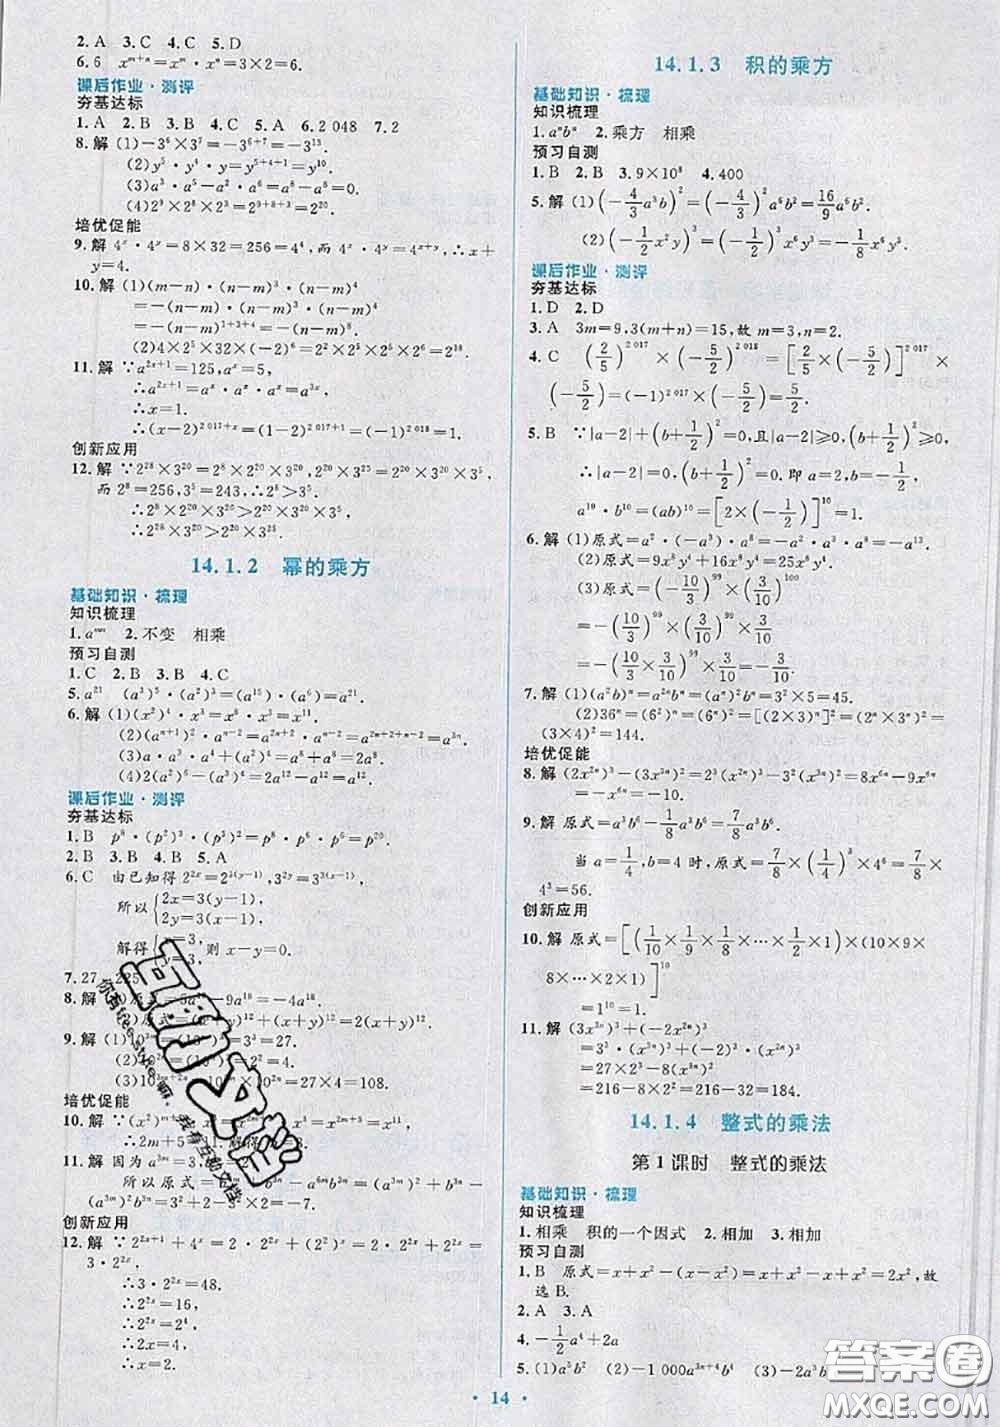 2. A  3. C  4. C  5. D
6. 6  xᵐ⁺ⁿ=xᵐ·xⁿ=3×2=6.
课后作业·测评
夯基达标
1. A  2. B  3. B  4. C  5. A  6. 2 048  7. 2
8. 解 (1)-3⁶×3⁷=-3⁶⁺⁷=-3¹³.
(2)y⁵·y⁴·y=y⁵⁺⁴⁺¹=y¹⁰.
(4)2⁹×2⁸×2³=2⁹⁺⁸⁺³=2²⁰.
培优促能
9. 解 4ˣ·4ʸ=8×32=256=4⁴,而 4ˣ·4ʸ=4ˣ⁺ʸ,∴x+
y=4.
10. 解 (1)(m-n)·(n-m)³·(n-m)⁴
=-(n-m)·(n-m)³·(n-m)⁴
=-(n-m)¹⁺³⁺⁴=-(n-m)⁸.
11. 解 ∵a²ˣ⁺¹=125,aˣ=5,
∴x=1.
∴(x-2)² ⁰¹⁷⁺ˣ=(1-2)² ⁰¹⁷⁺¹=(-1)² ⁰¹⁸=1.
创新应用
12. 解 ∵2²⁸×3²⁰=2⁸×2²⁰×3²⁰,2²⁰×3²⁵=2²⁰×3²⁰×3⁵,
而 2⁸=256,3⁵=243,∴2⁸>3⁵.
∴2⁸×2²⁰×3²⁰>2²⁰×3²⁰×3⁵.
∴2²⁸×3²⁰>2²⁰×3²⁵.
14.1.2 幂的乘方
基础知识·梳理
知识梳理
1. aᵐⁿ  2. 不变 相乘
预习自测
1. C  2. B  3. B  4. C
5. a²¹  (a³)⁵·(a²)³=(a¹⁵)·(a⁶)=a²¹.
6. 解 (1)(x²)⁴·x³=x⁸·x³=x¹¹.
(2)(aⁿ⁺¹)²·aⁿ⁻²=a²ⁿ⁺²·aⁿ⁻²=a²ⁿ⁺²⁺ⁿ⁻²=a³ⁿ.
课后作业·测评
夯基达标
1. B  p⁸·(p²)³·(p³)²=p⁸·p⁶·p⁶=p²⁰.
2. B  3. B  4. B  5. A
6. C  由已知得 2²ˣ=2³⁽ʸ⁻¹⁾,3²ʸ=3³⁽ˣ⁻¹⁾,
所以 {2x=3(y-1), 2y=3(x-1),
解得 {x=3, y=3, 则 x-y=0.
7. 27  225
培优促能
11. 解 因为 a³ᵐ=3,b³ⁿ=2,
创新应用
12. 解 ∵2²ˣ⁺¹+4ˣ=2·2²ˣ+(2²)ˣ=2·2²ˣ+2²ˣ=
3·2²ˣ,
∴3·2²ˣ=48.
∴2²ˣ=16,
∴2²ˣ=2⁴.
∴2x=4.
∴x=2.
14.1.3 积的乘方
基础知识·梳理
知识梳理
1. aⁿbⁿ  2. 乘方 相乘
预习自测
1. B  2. B  3. 9×10⁸  4. 400
5. 解 (1)(-4/3 a³b)²=(-4/3)²·(a³)²b²=16/9 a⁶b².
(2)(-1/2 x²y)³=(-1/2)³x⁶y³=-1/8 x⁶y³.
课后作业·测评
夯基达标
1. D  2. D
3. A  3m=9,3(m+n)=15,故 m=3,n=2.
4. C  (2/5)² ⁰¹⁷×(-5/2)² ⁰¹⁸=[2/5×(-5/2)]² ⁰¹⁷×
(-5/2)=(-1)² ⁰¹⁷×(-5/2)=5/2.
5. B  ∵|a-2|+(b+1/2)²=0,且|a-2|≥0,(b+1/2)²≥0,
∴|a-2|=0,(b+1/2)²=0. 即 a=2,b=-1/2,
a¹⁰·b¹⁰=(ab)¹⁰=[2×(-1/2)]¹⁰=1.
6. 解 (1)原式=a²·(-a³)·a⁶=-a²·a³·a⁶=-a¹¹.
(3)原式=(-10/3)⁹⁹×(3/10)¹⁰⁰
=(-10/3)⁹⁹×(3/10)⁹⁹×3/10
=(-10/3×3/10)⁹⁹×3/10=-3/10.
7. 解 (1)(a²b)ⁿ=(a²)ⁿbⁿ=(aⁿ)²bⁿ=3²×5=45.
(2)36ⁿ=(6²)ⁿ=(6ⁿ)²=[(2×3)ⁿ]²=(2ⁿ×3ⁿ)²=
(3×4)²=144.
培优促能
8. 解 (2x²ⁿ)³-(3x³ⁿ)²=2³(x²ⁿ)³-3²(x³ⁿ)²=8x⁶ⁿ-9x⁶ⁿ
=-x⁶ⁿ=-(x³ⁿ)²=-4.
9. 解 原式=a³b⁶-1/8 a³b⁶=7/8 a³b⁶.
当 a=1/4,b=4 时,原式=7/8×(1/4)³×4⁶=7/8×
4³=56.
创新应用
10. 解 原式=[(1/10×1/9×1/8×…×1/2×1)×(10×9×
8×…×2×1)]¹⁰
=1¹⁰=1.
11. 解 (3x³ⁿ)³+(-2x²ⁿ)³
=3³·(x³ⁿ)³+(-2)³·(x²ⁿ)³
=27×2³-8·(x³ⁿ)²
=216-8×2²=216-32=184.
14.1.4 整式的乘法
第 1 课时 整式的乘法
基础知识·梳理
知识梳理
1. 相乘 积的一个因式  2. 相加  3. 相加
预习自测
1. B  原式=x+x²-(x-x²)=x+x²-x+x²=2x²,故
选 B.
2. A  3. A
4. -1/2 a⁴+2a
5. (1)a⁵b²  (2)-1 000a³ⁿ⁺⁴
14
答案圈
MXQE.COM